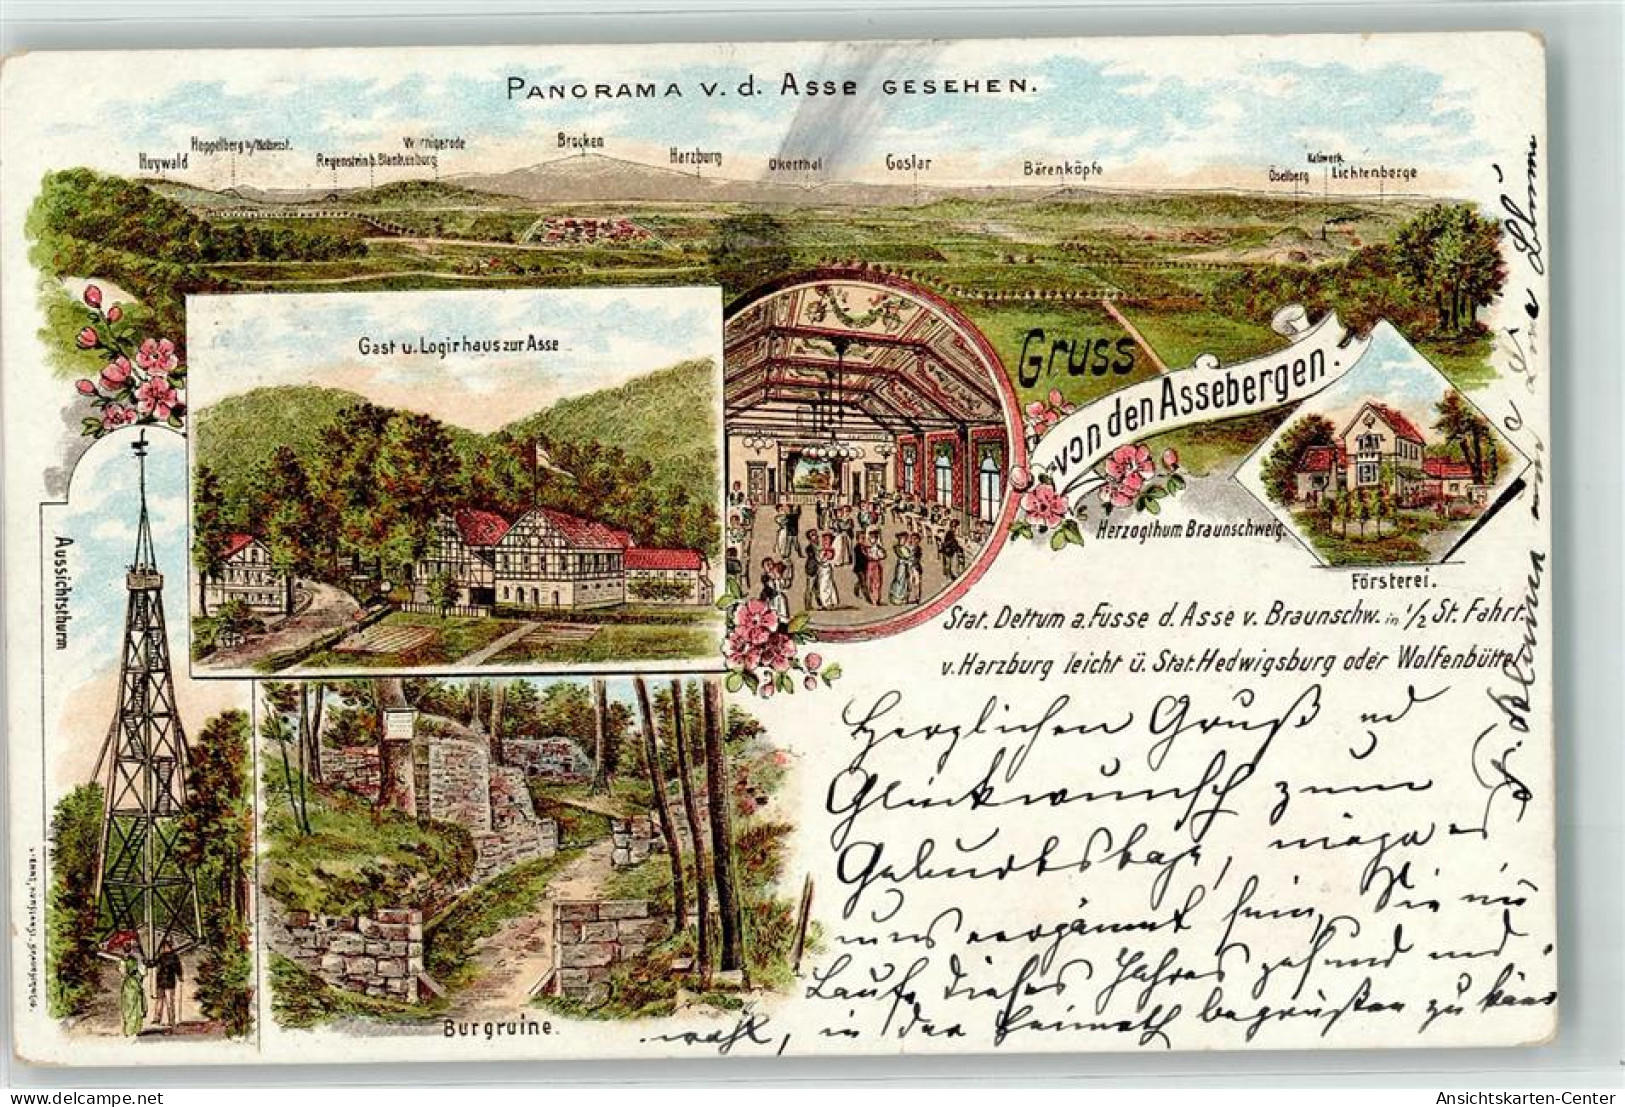 PANORAMA v. d. Asse GESEHEN.
Huywald
Hoppelberg b/Halberst.
Regenstein b. Blankenburg
Wernigerode
Brocken
Harzburg
Okerthal
Goslar
Bärenköpfe
Öselberg
Kaliwerk
Lichtenberge
Gast u. Logirhaus zur Asse
Gruss
von den Assebergen.
Herzogthum Braunschweig.
Försterei.
Aussichtsthurm
Stat. Dettum a. Fusse d. Asse v. Braunschw. in 1/2 St. Fahrt.
v. Harzburg leicht ü. Stat. Hedwigsburg oder Wolfenbüttel
Burgruine.
Herzlichen Gruß und
Glückwunsch zum
Geburtstage, möge es
uns vergönnt sein, Sie im
Laufe dieses Jahres gesund und
wohl, in der Heimath begrüßen zu können
www.delcampe.net
Ansichtskarten-Center